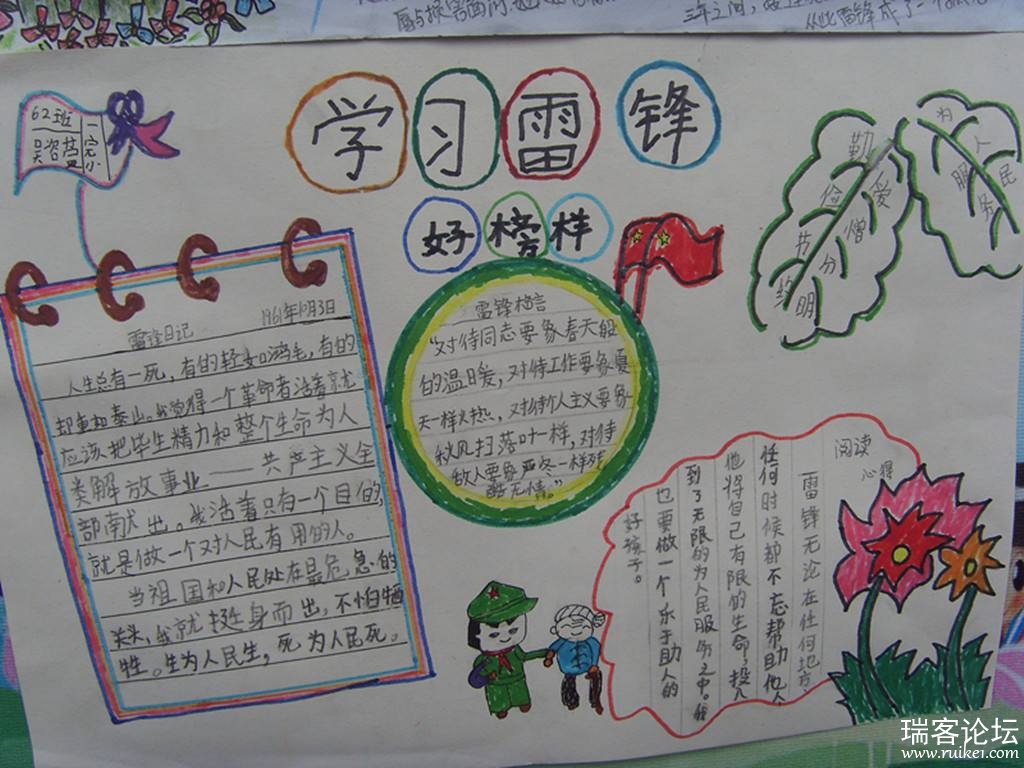 三年之间,
从此雷锋成了一
62班
一完小
学习雷锋
好榜样
雷锋日记 1961年10月3日
人生总有一死,有的轻如鸿毛,有的
却重如泰山。我觉得一个革命者活着就
应该把毕生精力和整个生命为人
类解放事业——共产主义全
部献出。我活着只有一个目的,
就是做一个对人民有用的人。
当祖国和人民处在最危急的
关头,我就挺身而出,不怕牺
牲。生为人民生,死为人民死。
雷锋格言
“对待同志要象春天般
的温暖,对待工作要象夏
天一样火热,对待个人主义要象
秋风扫落叶一样,对待
敌人要象严冬一样残
酷无情。”
勤俭节约
爱憎分明
为人民
服务
阅读
心得
雷锋无论在任何地方,
任何时候都不忘帮助他人
他将自己有限的生命,投入
到了无限的为人民服务之中。我
也要做一个乐于助人的
好孩子。
瑞客论坛
www.ruikei.com